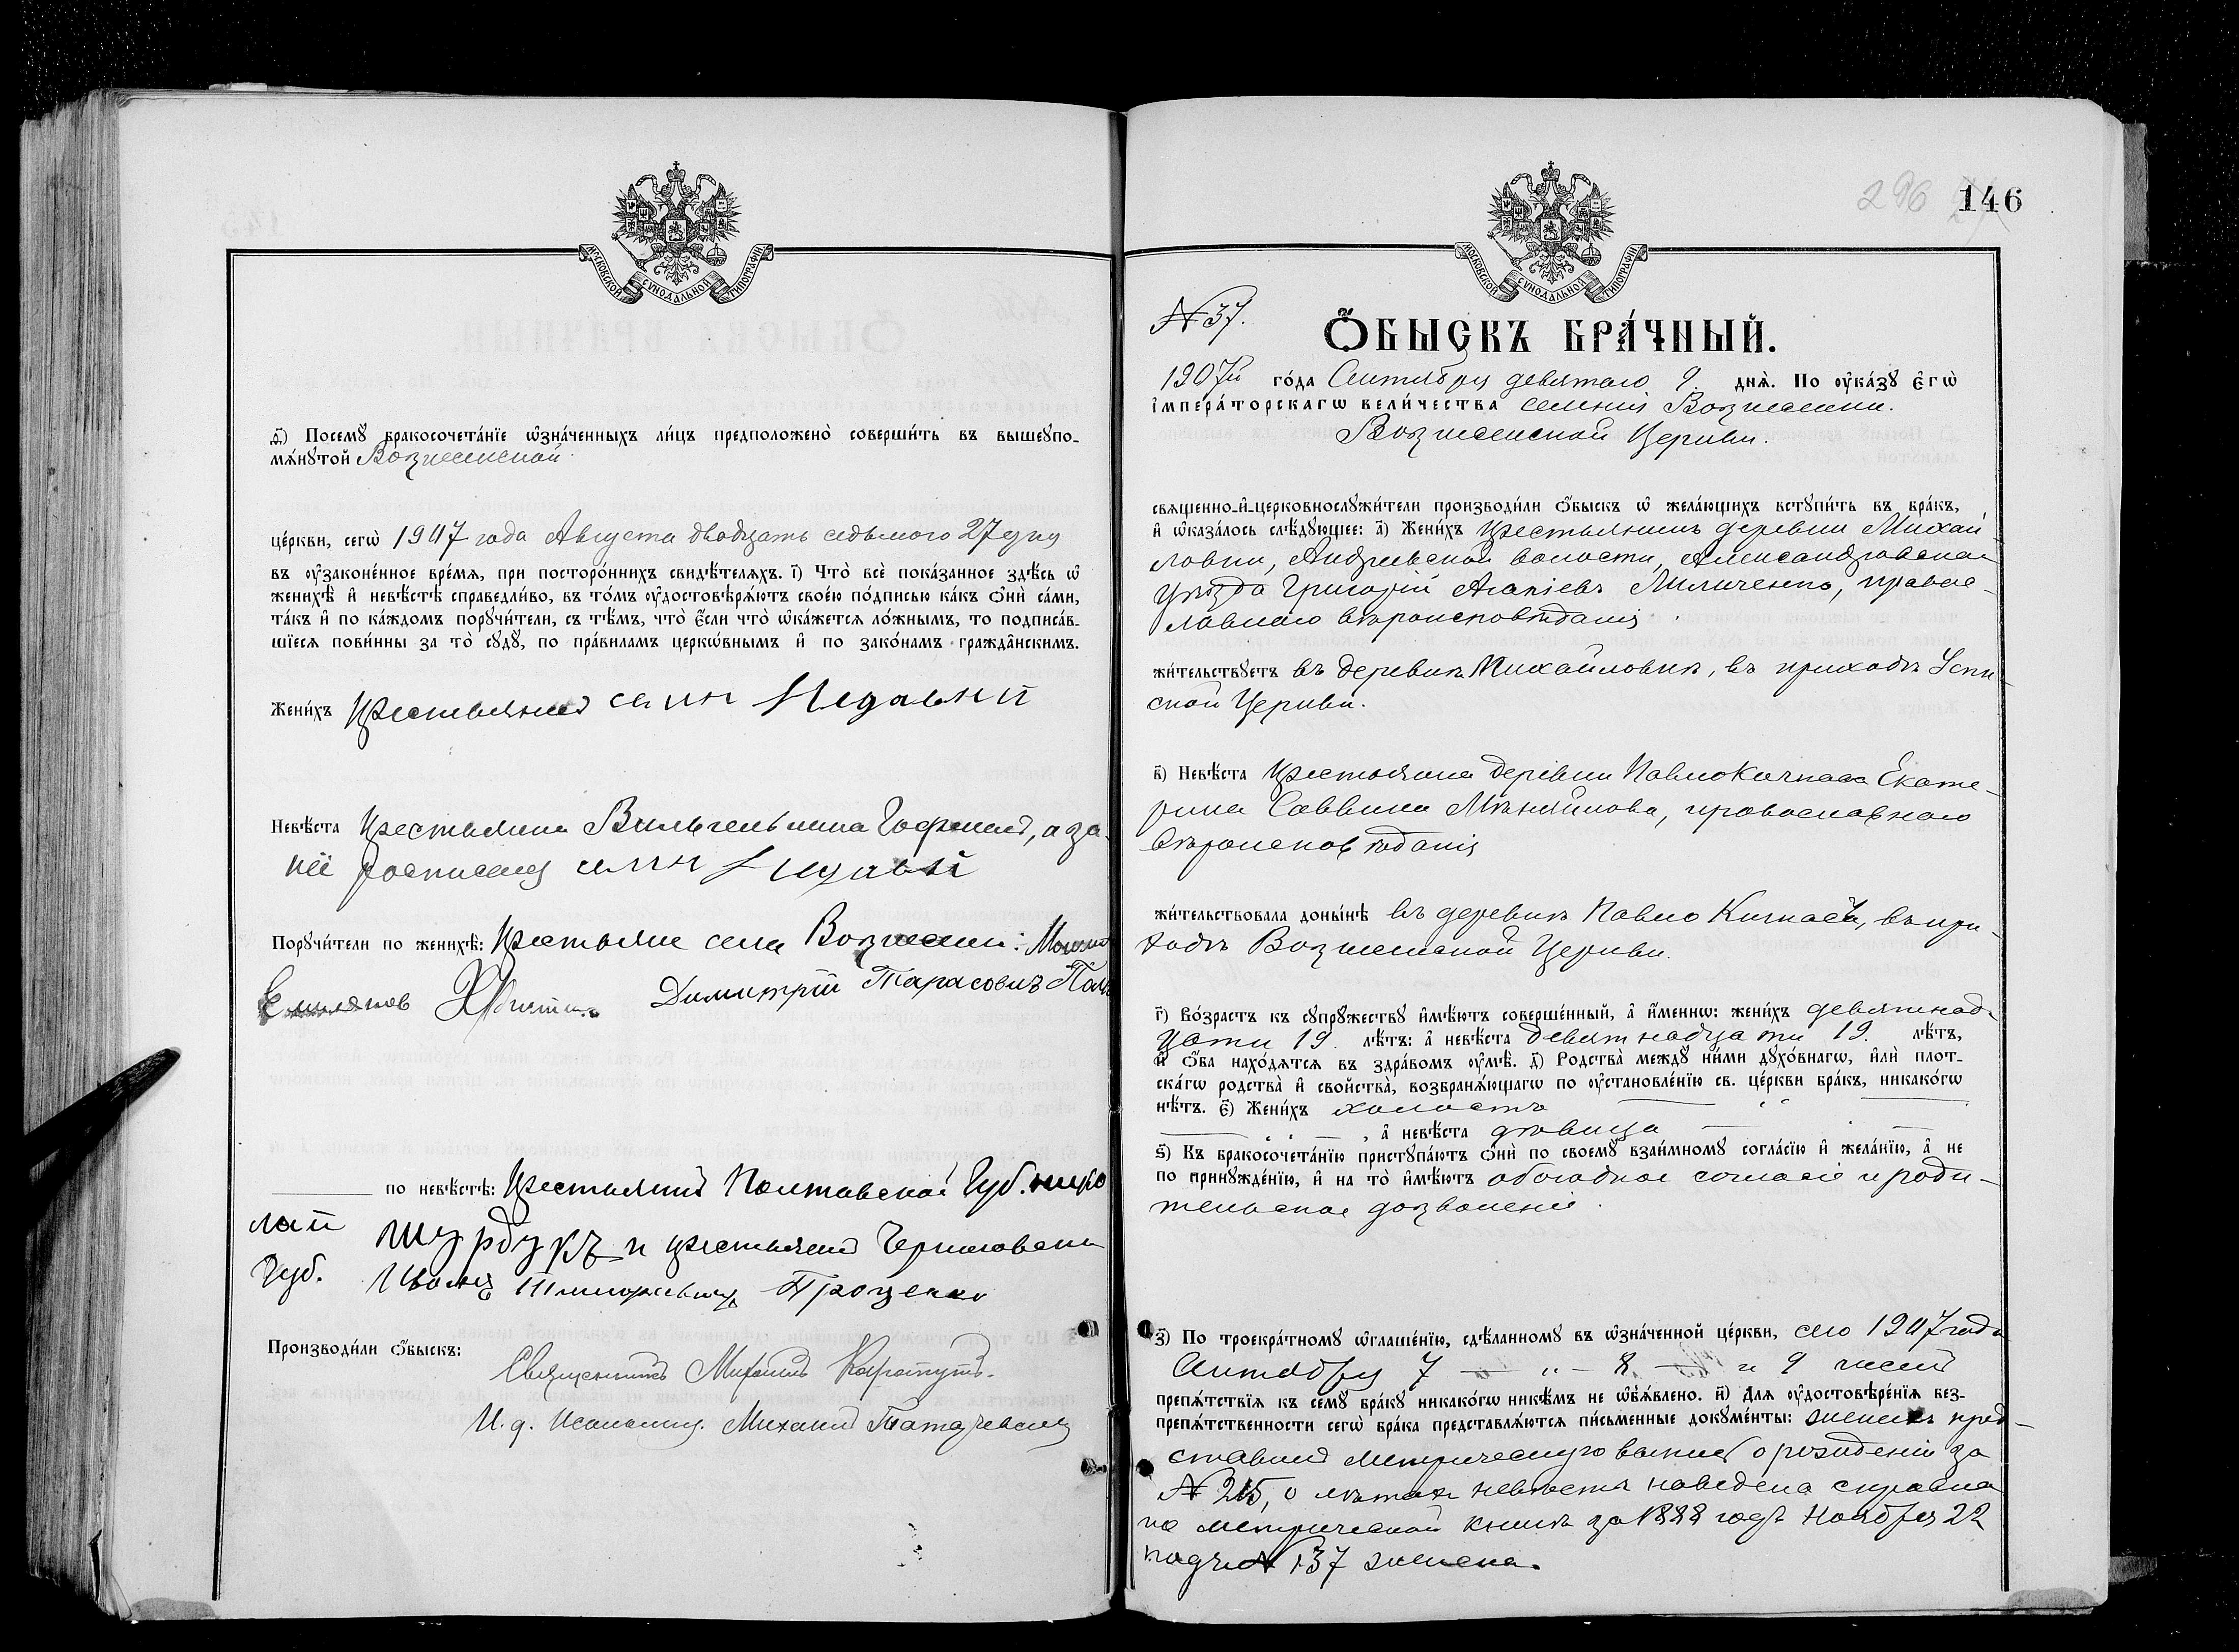 МОСКОВСКОЙ СѴНОДАЛЬНОЙ ТИПОГРАФІИ
ѳ҃) Посемꙋ̀ бракосочета́нїе ѡ҆зна́ченныхъ ли́цъ предположено̀ соверши́ть въ вышеꙋпо-
мѧ́нꙋтой Вознесенской
це́ркви, сегѡ̀ 1907 года Августа двадцать седьмого 27 дня
въ ᲂу҆законе́нное вре́мѧ, при посторо́ннихъ свидѣ́телѧхъ. і҃) Что̀ всѐ пока́занное здѣ́сь ѡ҆
женихѣ̀ и҆ невѣ́стѣ справедли́во, въ то́мъ ᲂу҆достовѣрѧ́ютъ свое́ю по́дписью ка́къ ѻ҆нѝ са́ми,
та́къ и҆ по ка́ждомъ порꙋчи́тели, съ тѣ́мъ, что̀ є҆́сли что̀ ѡ҆ка́жетсѧ ло́жнымъ, то подписа́в-
шїесѧ пови́нны за то̀ сꙋдꙋ̀, по пра́виламъ церко́внымъ и҆ по зако́намъ гражда́нскимъ.
Жени́хъ Крестьянинъ
Невѣ́ста Крестьянка Вильгельмина Гофманъ, а за
нее росписался
Порꙋчи́тели по женихѣ̀: Крестьяне села Вознесенки:
Димитрій Тарасовичъ
по невѣ́стѣ: Крестьянинъ Полтавской Губ. Нико
лай Шурдукъ и крестьянинъ Черниговской
Губ. Иванъ Троценко
Производи́ли ѻ҆́быскъ:
Священникъ Михаилъ
И. д. псаломщ. Михаилъ
296 146
МОСКОВСКОЙ СѴНОДАЛЬНОЙ ТИПОГРАФІИ
№ 37.
Ѻ҆́БЫСКЪ БРА́ЧНЫЙ.
1907й го́да Сентября девятаго 9 днѧ̀. По ᲂу҆ка́зꙋ є҆гѡ̀
і҆мпера́торскагѡ вели́чества селенія Вознесенки.
Вознесенской Церкви.
свѧщенно-и҆-церковнослꙋжи́тели производи́ли ѻ҆́быскъ ѡ҆ жела́ющихъ встꙋпи́ть въ бра́къ,
и҆ ѡ҆каза́лось слѣ́дꙋющее: а҃) Жени́хъ крестьянинъ деревни Михай
ловки, Андреевской волости, Александровскаго
уѣзда Григорій Агапіевъ Миличенко, правос-
лавнаго вѣроисповѣданія
жи́тельствꙋетъ въ деревнѣ Михайловкѣ, въ приходѣ Успен
ской Церкви.
в҃) Невѣ́ста крестьянка деревни Павлокичкаса Екате-
рина Саввина, православнаго
вѣроисповѣданія
жи́тельствовала доны́нѣ въ деревнѣ Павло Кичкасѣ, въ при-
ходѣ Вознесенской Церкви.
г҃) Во́зрастъ къ сꙋпрꙋ́жествꙋ и҆мѣ́ютъ соверше́нный, а҆ и҆́меннѡ: жени́хъ девятнад-
цати 19. лѣ́тъ: а҆ невѣ́ста девятнадцати 19. лѣ́тъ,
и҆ ѻ҆́ба нахо́дѧтсѧ въ здра́вомъ ᲂу҆мѣ̀. д҃) Родства̀ междꙋ̀ ни́ми дꙋхо́внагѡ, и҆лѝ плот-
ска́гѡ родства̀ и҆ свойства̀, возбранѧ́ющагѡ по ᲂу҆становле́нїю св. це́ркви бра́къ, никако́гѡ
нѣ́тъ. є҃) Жени́хъ холостъ
, а҆ невѣ́ста дѣвица
ѕ҃) Къ бракосочета́нїю пристꙋпа́ютъ ѻ҆нѝ по своемꙋ̀ взаи́мномꙋ согла́сїю и҆ жела́нїю, а҆ не
по принꙋжде́нїю, и҆ на то̀ и҆мѣ́ютъ обоюдное согласіе и роди-
тельское дозволеніе.
з҃) По троекра́тномꙋ ѡ҆глаше́нїю, сдѣ́ланномꙋ въ ѡ҆зна́ченной це́ркви, сего 1907 года
Сентября 7 — „ — 8 — и 9 чиселъ
препѧ́тствїѧ къ семꙋ̀ бра́кꙋ никако́гѡ никѣ́мъ не ѡ҆б̾ѧ́влено. и҃) Длѧ ᲂу҆достовѣре́нїѧ без-
препѧ́тственности сегѡ̀ бра́ка представлѧ́ютсѧ пи́сьменные докꙋме́нты: женихъ пред-
ставилъ метрическую выпись о рожденіи за
№ 215, о лѣтахъ невѣсты наведена справка
по метрической книгѣ за 1888 годъ Ноября 22
подъ № 137 женска.